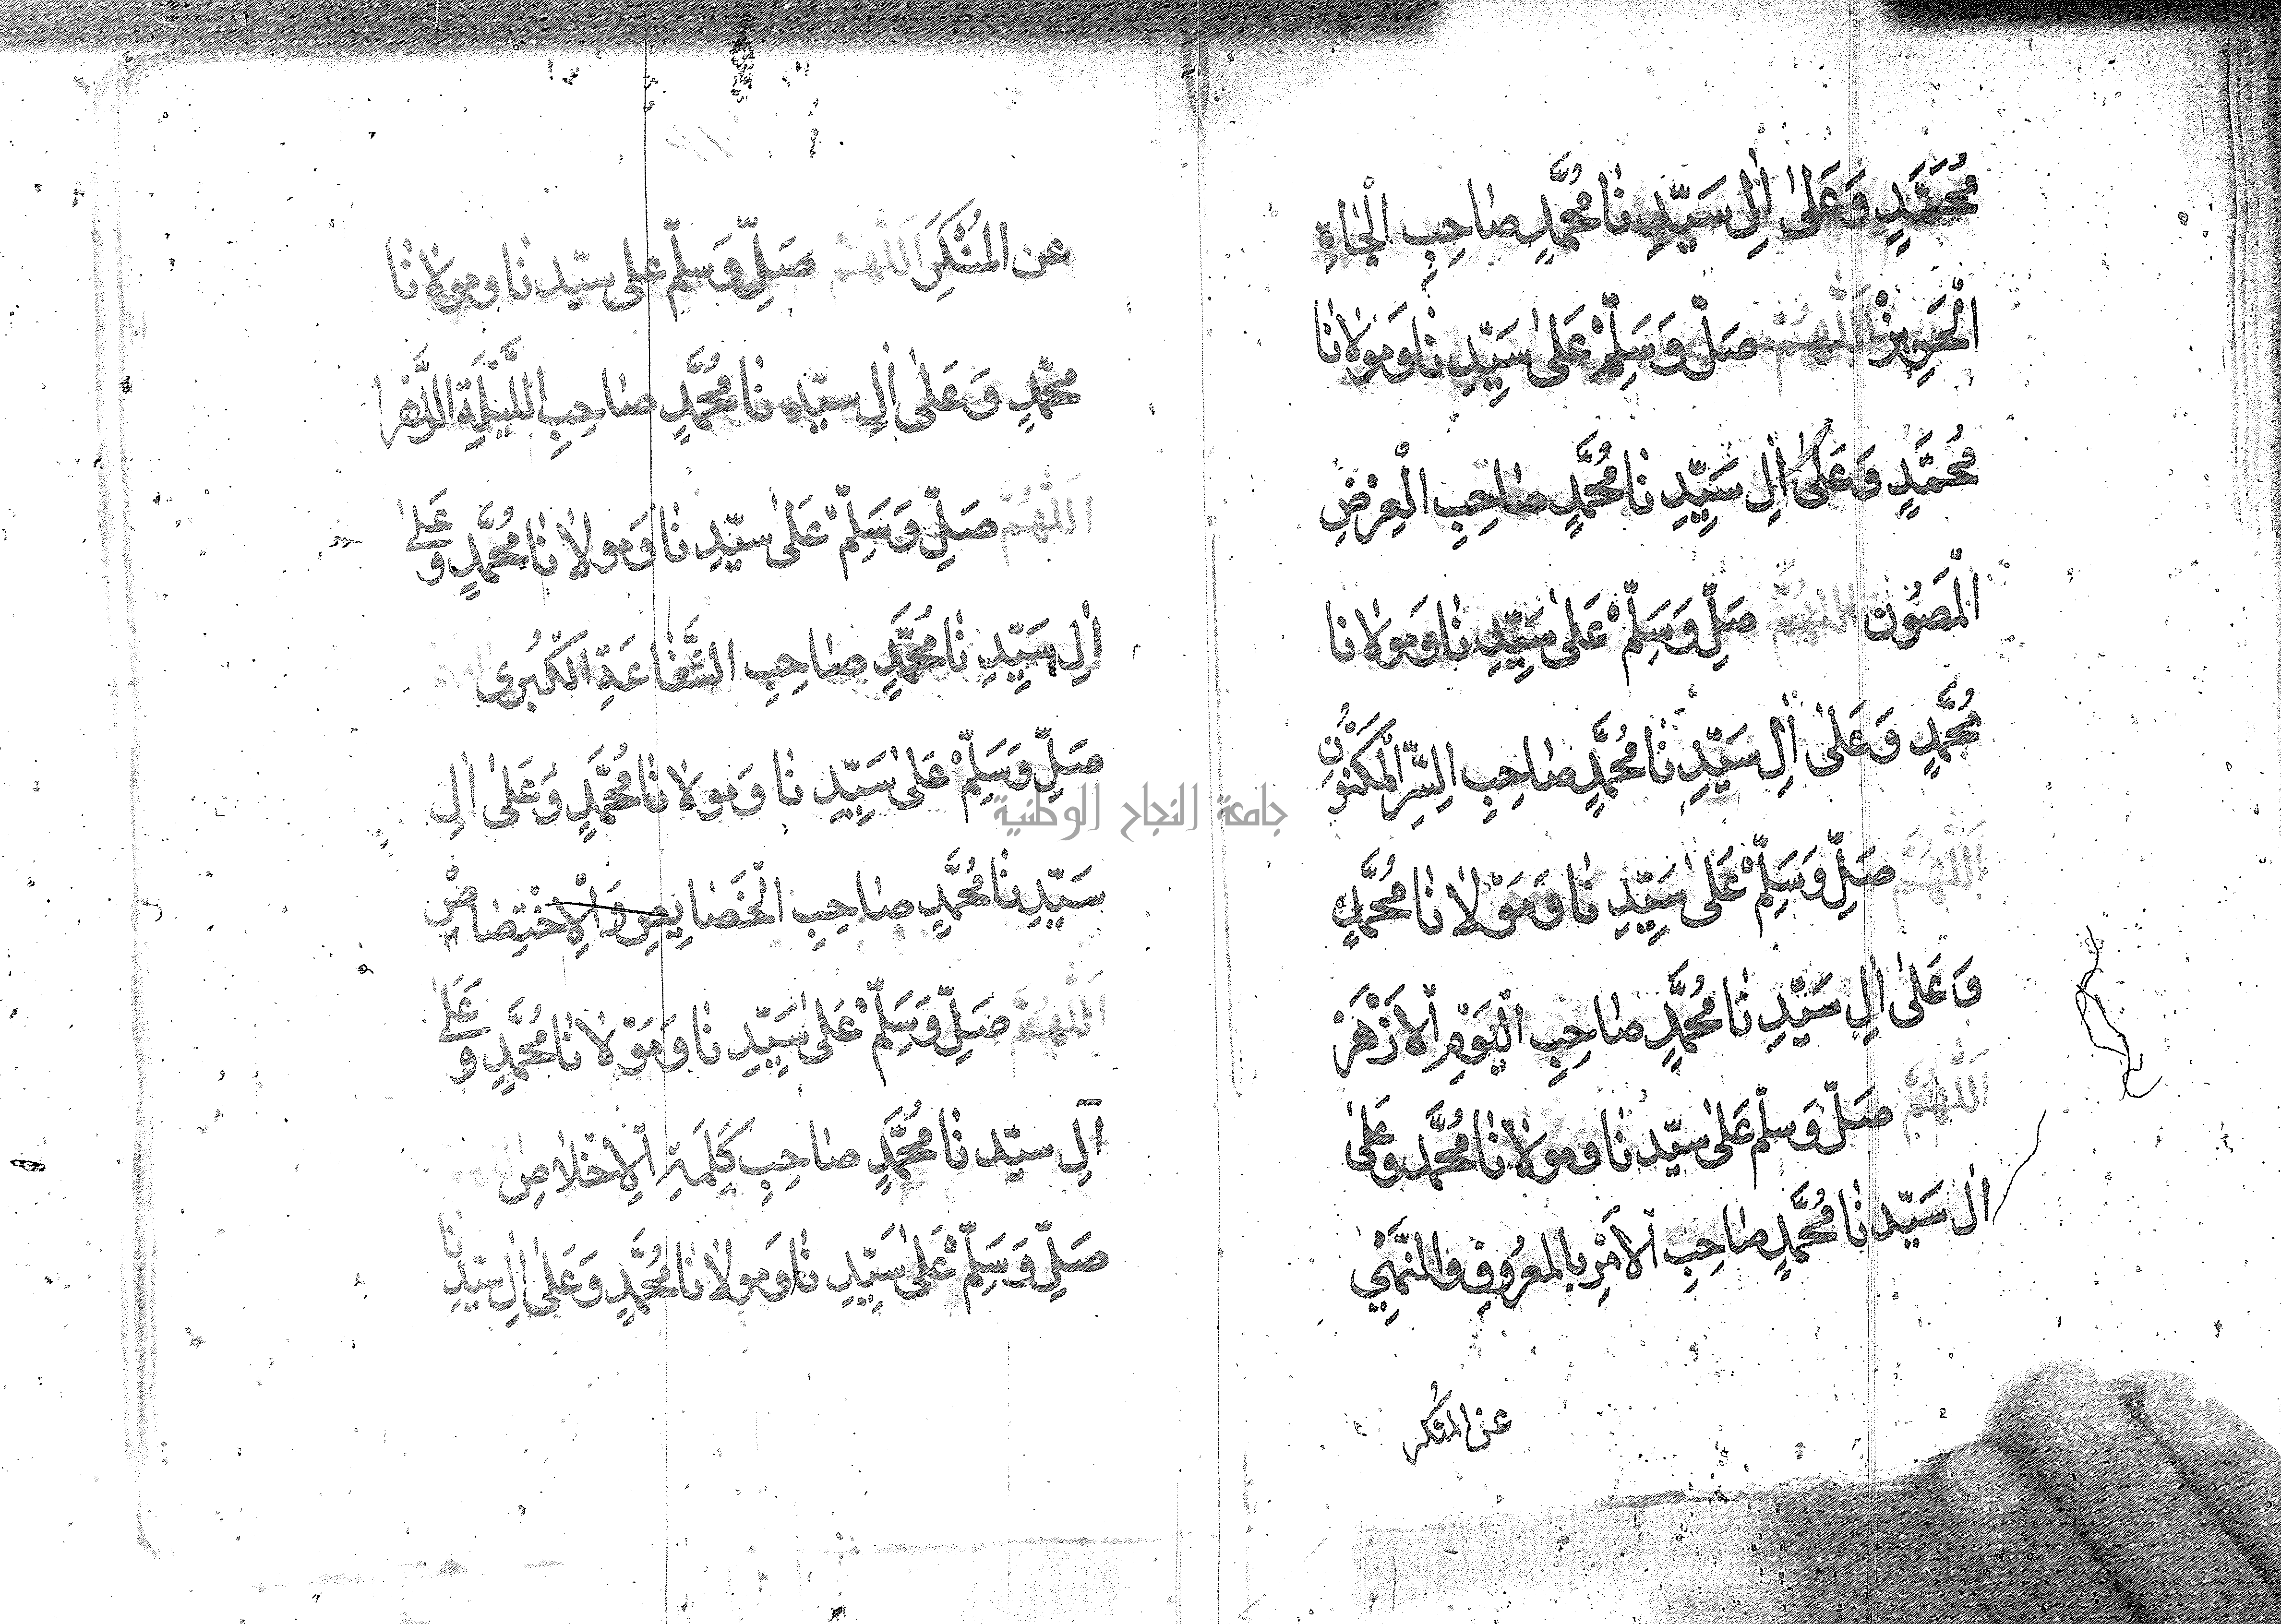 مُحَمَّدٍ وَعَلٰى اٰلِ سَيِّدِ نَا مُحَمَّدٍ صَاحِبِ الْجَاهِ
الْحَرِيزْ اَللّٰهُمَّ صَلِّ وَسَلِّمْ عَلٰى سَيِّدِ نَا وَمَولَانَا
مُحَمَّدٍ وَعَلٰى اٰلِ سَيِّدِ نَا مُحَمَّدٍ صَاحِبِ الْعِرْضِ
الْمَصُون اللّٰهُمَّ صَلِّ وَسَلِّمْ عَلٰى سَيِّدِ نَا وَمَولَانَا
مُحَمَّدٍ وَعَلٰى اٰلِ سَيِّدِ نَا مُحَمَّدٍ صَاحِبِ السِّرِّ الْمَكْنُونِ
اَللّٰهُمَّ صَلِّ وَسَلِّمْ عَلٰى سَيِّدِ نَا وَمَوْلَانَا مُحَمَّدٍ
وَعَلٰى اٰلِ سَيِّدِ نَا مُحَمَّدٍ صَاحِبِ الْيَوْمِ الْاَزْهَرْ
اَللّٰهُمَّ صَلِّ وَسلّم عَلٰى سيّد نَا ومولَانَا مُحَمَّد وَعَلٰى
اٰل سَيّد نَا مُحَمَّدٍ صَاحِبِ الْاَمْرِ بالمعرُوفِ والنَّهْيِ
عن المنكر
عن الْمُنْكَرِ اَللّٰهُمَّ صَلِّ وَسلّم على سيّد نَا ومولَانَا
محمّدٍ وَعَلٰى اٰلِ سيّدِ نَا مُحَمَّدٍ صَاحِبِ اللَّيْلَةِ الزَّهْرا
اَللّٰهُمَّ صَلِّ وَسَلِّمْ عَلٰى سيّدِ نَا وَمولَانَا مُحَمَّدٍ وَعَلٰى
اٰلِ سَيِّدِ نَا مُحَمَّدٍ صَاحِبِ الشَّفَاعَةِ الْكُبرى
صَلِّ وَسَلِّمْ عَلٰى سَيِّدِ نَا وَمولَانَا مُحَمَّدٍ وَعَلٰى اٰلِ
سَيِّدِ نَا مُحَمَّدٍ صَاحِبِ الْخَصَايِصِ وَالْاِخْتِصَاصْ
اَللّٰهُمَّ صَلِّ وَسَلِّمْ عَلٰى سَيِّدِ نَا وَمَوْلَانَا مُحَمَّدٍ وَعَلٰى
آلِ سيّد نَا مُحَمَّدٍ صَاحِبِ كَلِمَةِ الْاِخْلَاصِ
صَلِّ وَسَلِّمْ عَلٰى سَيِّدِ نَا وَمولَانَا مُحَمَّدٍ وَعَلٰى اٰلِ سيّدِ نَا
جامعة النجاح الوطنية